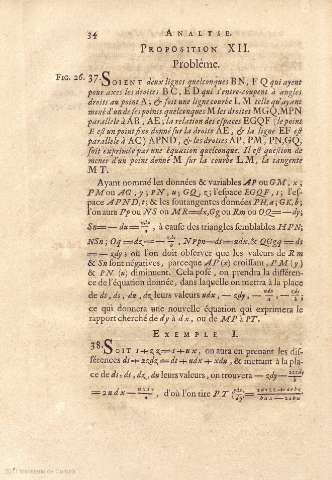 34 ANALYSE.
PROPOSITION XII.
Probléme.
FIG. 26. 37. SOIENT deux lignes quelconques BN, FQ qui ayent
pour axes les droites BC, ED qui s'entre-coupent à angles
droits au point A; & soit une ligne courbe LM telle qu'ayant
mené d'un de ses points quelconques M les droites MGQ, MPN
paralleles à AB, AE; la relation des espaces EGQF (le point
E est un point fixe donné sur la droite AE, & la ligne EF est
parallele à AC) APND, & des droites AP, PM, PN, GQ,
soit exprimée par une équation quelconque. Il est question de
mener d'un point donné M sur la courbe LM, la tangente
MT.
Ayant nommé les données & variables AP ou GM, x;
PM ou AG, y; PN, u; GQ, z; l'espace EGQF, s; l'es-
pace APND, t; & les soutangentes données PH, a; GK, b;
l'on aura Pp ou NS ou MR=dx, Gg ou Rm ou OQ=—dy;
Sn=—du= à cause des triangles semblables HPN,
NSn; Oq=dz=— NPpn=dt=udx, & QGgq=ds
=—zdy; où l'on doit observer que les valeurs de Rm
& Sn sont négatives, parceque AP (x) croissant, PM (y)
& PN (u) diminuent. Cela posé, on prendra la différen-
ce de l'équation donnée, dans laquelle on mettra à la place
de dt, ds, du, dz leurs valeurs udx, —zdy,
ce qui donnera une nouvelle équation qui exprimera le
rapport cherché de dy à dx, ou de MP à PT.
EXEMPLE I.
38. SOIT s+zz=t+ux, on aura en prenant les dif-
férences ds+2zdz=dt+udx+xdu, & mettant à la pla-
ce de ds, dt, dz, du leurs valeurs, on trouvera —zdy—
=2udx— d'où l'on tire PT